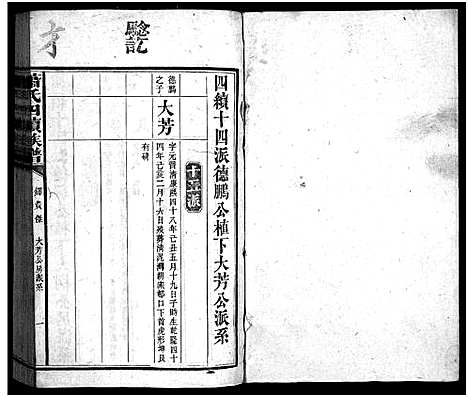 驗訖
四續十四派德鵬公植下大芳公派系
十五派
德鵬之子
大芳
字元 清康熙四十八年己丑五月十九日子時生乾隆四十
四年己亥二月十六日歿葬清泥灣 口下首虎形坤艮
有碑
氏四續族譜
大芳公房派系
一